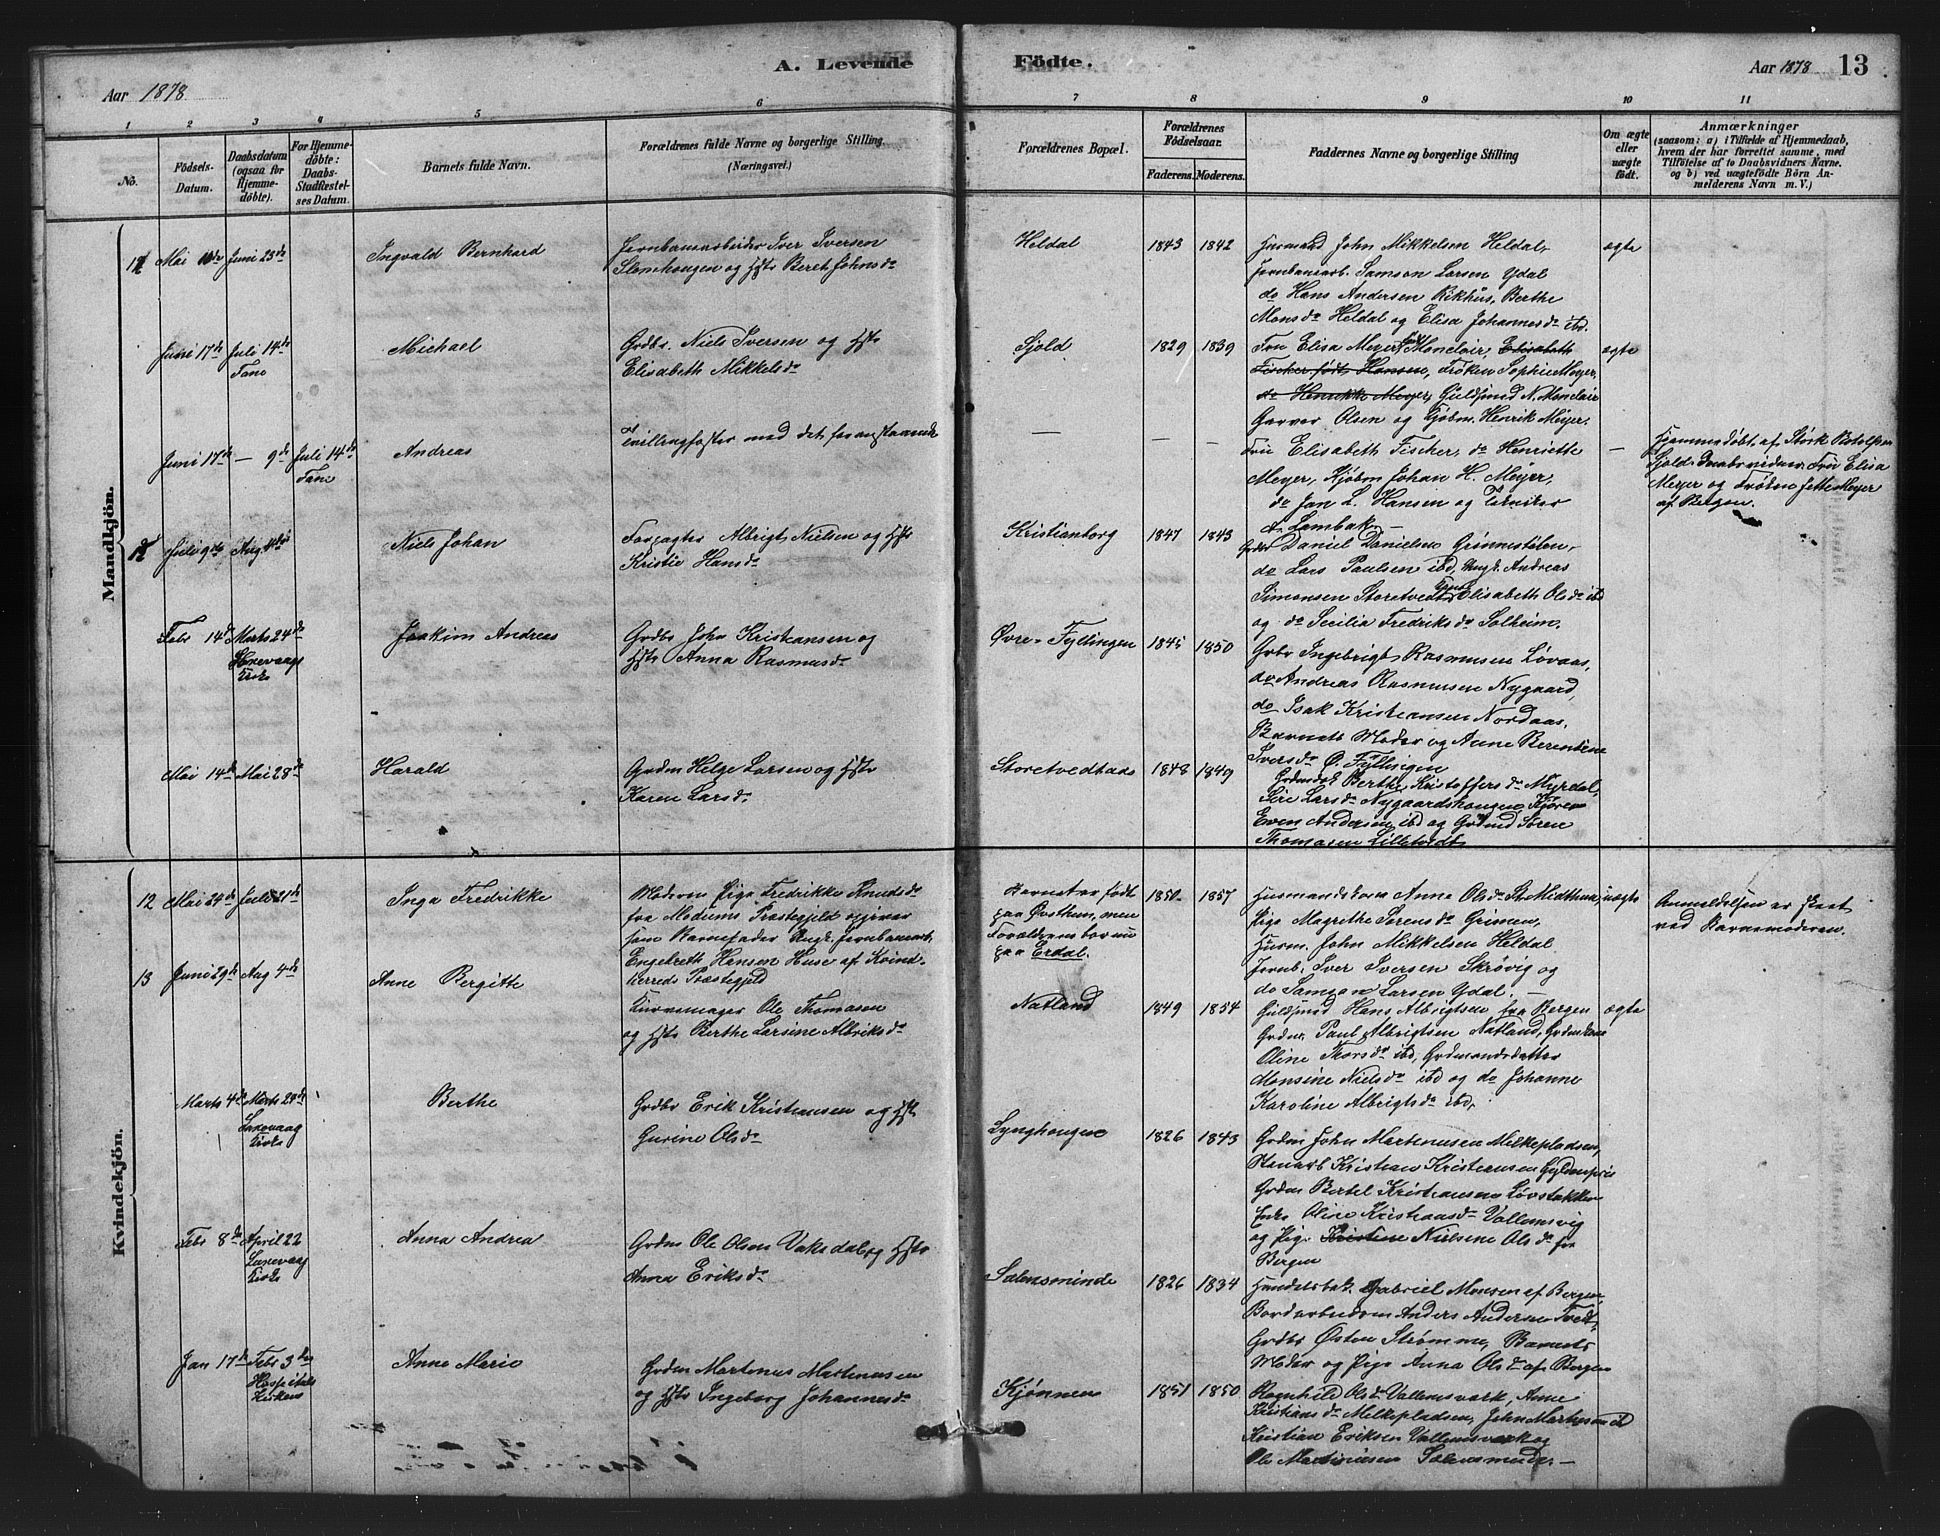 Aar 1878
A. Levende
Födte.
Aar 1878
13
1
2
3
4
5
6
7
8
9
10
11
No.
Födsels-
Datum.
Daabsdatum
(ogsaa for
Hjemme-
döbte).
For Hjemme-
döbte:
Daabs-
Stadfæstel-
ses Datum.
Barnets fulde Navn.
Forældrenes fulde Navne og borgerlige Stilling.
(Næringsvei.)
Forældrenes Bopæl.
Forældrenes
Födselsaar.
Faderens.
Moderens.
Faddernes Navne og borgerlige Stilling
Om ægte
eller
uægte
födt.
Anmærkninger
(saasom: a) i Tilfælde af Hjemmedaab,
hvem der har forrettet samme, med
Tilföielse af to Daabsvidners Navne,
og b) ved uægtefödte Börn An-
melderens Navn m. V.)
Mandkjön.
Mai
Juni 23de
Ingvald Bernhard
Jernbanearbeider Iver Iversen
og Hstr Beret Johnsdr
Heldal
1843
1842
Husmand John Mikkelsen Heldal,
Jernbanearb. Samson Larsen Ydal
do Hans Andersen Rikhus, Berthe
Monsdr Heldal og Elisa Johannesdr ibd.
ægte
Juni 17de
Juli 14de
Fane
Michael
Grdbr. Niels Iversen og Hstr
Elisabeth Mikkelsdr
Sjold
1829
1839
Fru Elisa Meyer født Monclair, Elisabeth
Fischer født Hansen, Frøken Sophie Meyer,
do Henrikke Meyer, Guldsmd N. Monclair
Garver Olsen og Kjøbm. Henrik Meyer.
ægte
Juni 17de
— 9de
Juli 14de
Fane
Andreas
Tvillingfoster med det foranstaaende
—
—
—
Fru Elisabeth Fischer, do Henriette
Meyer, Kjøbm Johan H. Meyer,
do Jan L. Hansen og
Lambak —
—
Hjemmedøbt af Størk Botolfsen
Sjold. Daabsvidner. Fru Elisa
Meyer og Frøken Jette Meyer
af Bergen.
Juli 9de
Aug. 4de
Niels Johan
Forpagter Albrigt Nielsen og Hstr
Kristie Hansdr
Kristianborg
1847
1843
Grdbr Daniel Danielsen Grimmestølen,
do Lars Paulsen ibd, Ungk. Andreas
Simonsen Storetvedt, Elisabeth Olsdr ibd
og do Secilia Fredriksdr Solheim.
Febr 14de
Marts 24de
Kirke
Joakim Andreas
Grdbr John Kristiansen og
Hstr Anna Rasmusdr
Øvre-Fyllingen
1845
1850
Grbr Ingebrigt Rasmussen Løvaas,
do Andreas Rasmussen Nygaard,
do Isak Kristiansen Nordaas,
Barnets Moder og Anne Berentine
Iversdr Ø. Fyllingen
Mai 14de
Mai 28de
Harald
Grdm Helge Larsen og Hstr
Karen Larsdr
Storetvedtaas
1848
1849
Berthe Kristoffersdr Myrdal,
Siri Larsdr Nygaardshougen,
Even Andersen ibd og Grdmd Søren
Thomasen Lilletvedt
Kvindekjön.
12
Mai 24de
Juli 21de
Inga Fredrikke
Moderen Pige Fredrikke Knudsdr
fra Modums Præstegjeld opgiver
som Barnefader Ungk. Jernbanearb.
Engebreth Hansen Huse af Kvind-
herreds Præstegjeld
Barnet er født
paa Østhun, men
Forældrene bor nu
paa Erdal.
1850
1857
Husmandskone Anne Olsdr St. Midthun,
Pige Magrethe Sørensdr Grimen,
Husm. John Mikkelsen Heldal
Jernb. Iver Iversen Skrøvig og
do Samson Larsen Ydal. —
uægte
Anmeldelsen er skeet
ved Barnemoderen.
13
Juni 29de
Aug 4de
Anne Bergitte
Kurvemager Ole Thomasen
og Hstr Berthe Larsine Albriksdr
Natland
1849
1854
Guldsmd Hans Albrigtsen fra Bergen
Grdm. Paul Albrigtsen Natland, Grdmkone
Oline Thorsdr ibd, Grdmandsdatter
Monsine Nielsdr ibd og do Johanne
Karoline Albrigtsdr ibd,
ægte
Marts 4de
Marts 24de
Laxevaag
Kirke
Berthe
Grdbr Erik Kristiansen og Hstr
Gurine Olsdr
Lynghougen
1826
1843
Grdm John Martinusen Melkepladsen,
Kristian Kristiansen Gyldenpris
Grdm Bertel Kristiansen Løvstakken
Enke Oline Kristiansdr Vallemsvig
og Pige Kristine Nielsine Olsdr fra
Bergen
Febr 8de
April 22
Laxevaag
Kirke
Anna Andrea
Grdm Ole Olsen Vaksdal og Hstr
Anna Eriksdr
Sælensminde
1826
1834
Handelsbet. Gabriel Monsen af Bergen,
Anders Andersen Tvedt,
Grdbr Østen Strømme, Barnets
Moder og Pige Anna Olsdr af Bergen
Jan 17de
Febr 3de
Hospitals
Kirken
Anne Marie
Grdm Martinus Martinusen
og Hstr Ingeborg Johannesdr
Kjønnen
1851
1850
Ragnhild Olsdr Vallemsvark, Anne
Kristiansdr Melkepladsen, John Martinsen ibd
Kristian Eriksen Vallemsvark og
Ole Martinusen Sælensminde. —